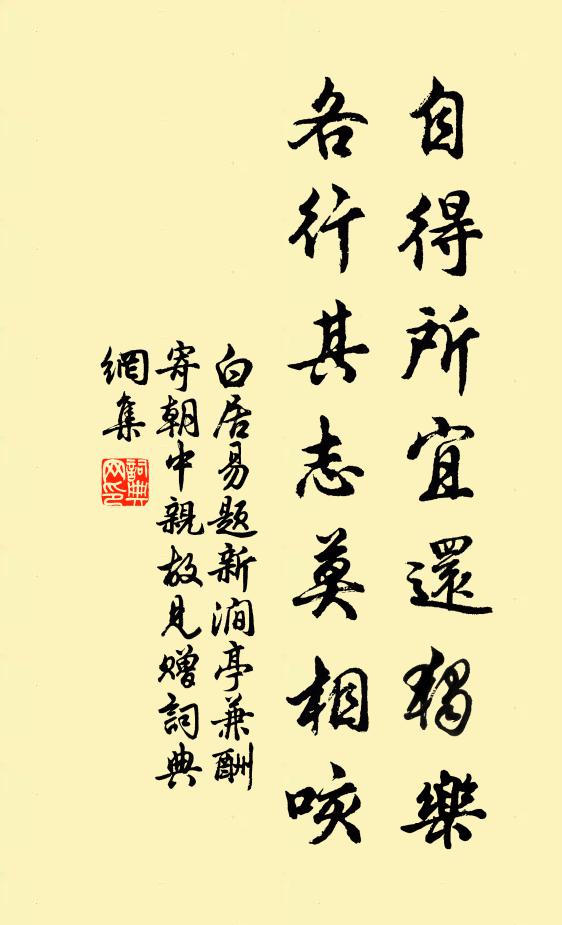 自得所宜還獨樂
各行其志莫相咳
白居易題新澗亭兼酬
寄朝中親故見贈詞典
網集
詞典
网印